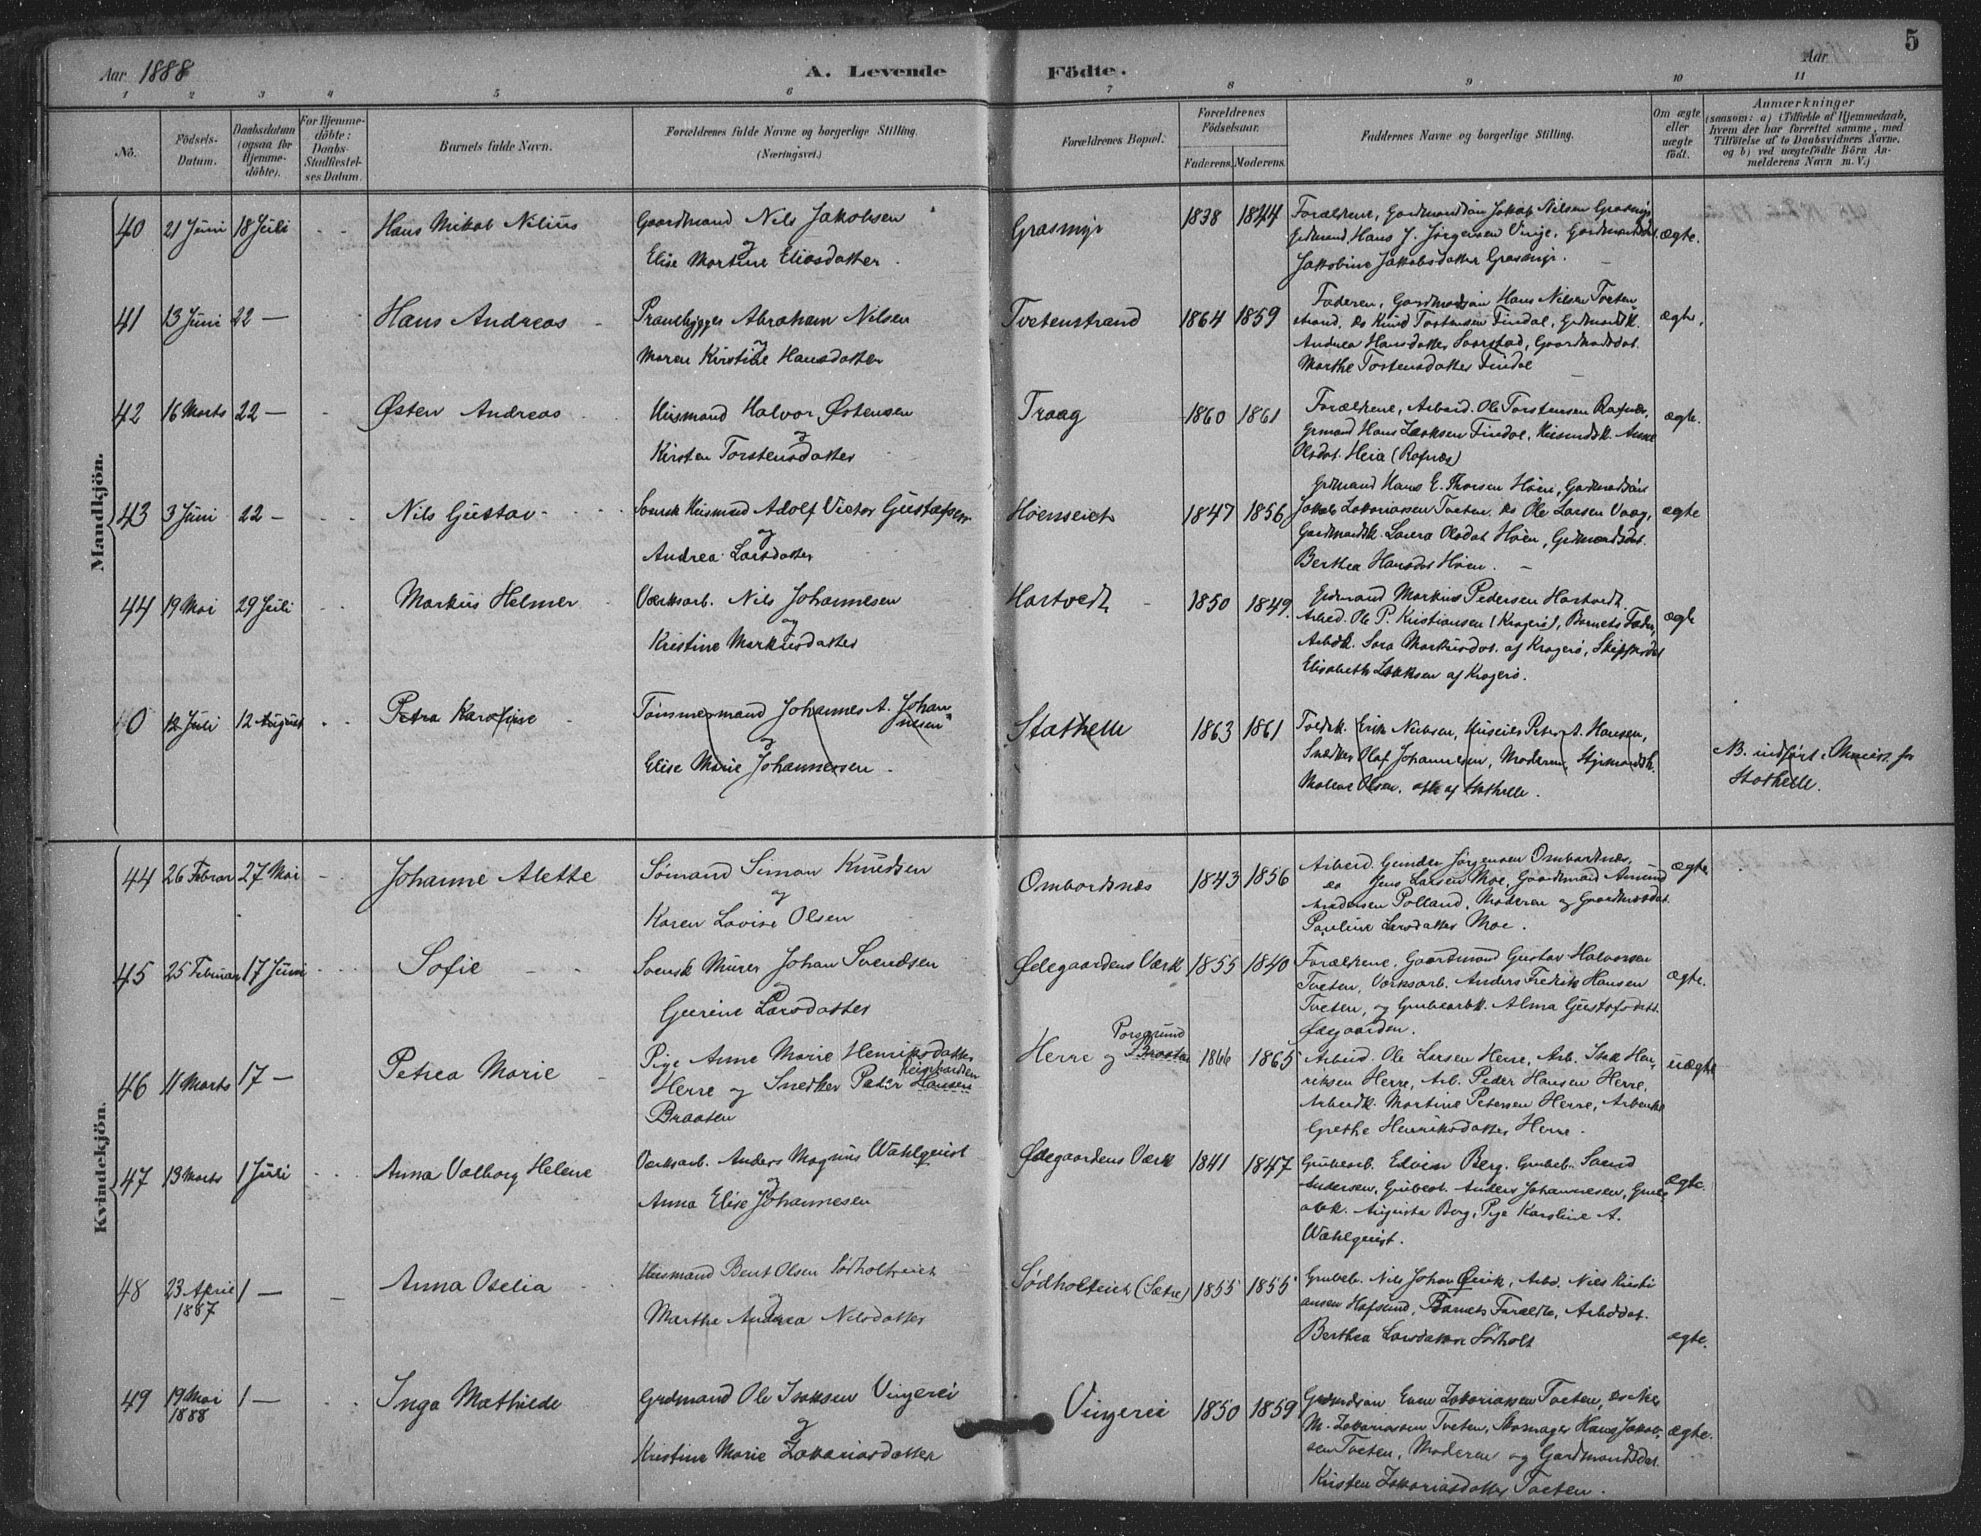 5
Aar 1888
A. Levende Födte.
Aar
1 2 3 4 5 6 7 8 9 10 11
Nò.
Födsels-Datum.
Daabsdatum (ogsaa for Hjemme-döbte).
For Hjemme-döbte: Daabs-Stadfæstel-ses Datum.
Barnets fulde Navn.
Forældrenes fulde Navne og borgerlige Stilling. (Næringsvei.)
Forældrenes Bopæl.
Forældrenes Födselsaar.
Faderens. Moderens.
Faddernes Navne og borgerlige Stilling.
Om ægte eller uægte födt.
Anmærkninger
(saasom: a) i Tilfælde af Hjemmedaab,
hvem der har forrettet samme, med
Tilföielse af to Daabsvidners Navne,
og b) ved uægtefödte Börn An-
melderens Navn m. V.)
Mandkjön.
40 21 Juni 18 Juli Hans Mikal Nilius Gaardmand Nils Jakobsen
og
Elise Martine Eliasdatter
Grasmyr 1838 1844 Forældrene, Gardmandssøn Jakob Nilsen Grasmyr
Grdmand Hans J. Jørgensen Vinje, Gardmandsdat.
Jakobine Jakobsdatter Grasmyr.
ægte.
41 13 Juni 22 — Hans Andreas Abraham Nilsen
og
Maren Kirstine Hansdatter
Tvetenstrand 1864 1859 Faderen, Gardmdsøn Hans Nilsen Tveten
strand, do Knud Torstensen Findal, Grdmandsk.
Andrea Hansdatter Saastad, Gaardmdsdat.
Marthe Torstensdatter Findal
ægte.
42 16 Marts 22 — Østen Andreas Husmand Halvor Østensen
og
Kirsten Torstensdatter
Traag 1860 1861 Forældrene, Arbeid. Ole Torstensen Rafnæs,
Grmand Hans Isaksen Findal, Husmdsk. Anne
Olsdat. Heia (Rafnæs)
ægte.
43 3 Juni 22 — Nils Gustav Svensk Husmand Adolf Victor Gustafsen
og
Andrea Larsdatter
Høenseiet 1847 1856 Grdmand Hans E. Thorsen Høen, Gardmandssøn
Jakob Zakariassen Tveten. do Ole Larsen Vaag,
Gardmandsk. Laura Olsdat Høen, Grdmandsdat.
Berthea Hansdat Høen.
ægte
44 19 Mai 29 Juli Markus Helmer Værksarb. Nils Johannesen
og
Kristine Markusdatter
Hartvedt 1850 1849. Grdmand Markus Pedersen Hartvedt
Arbed. Ole P. Kristiansen (Kragerø), Barnets Fader,
Arbdk. Sara Markusdat. af Kragerø,
Elisabeth Isaksen af Kragerø.
ægte
12 Juli 12 August Petra Karoline Tømmermand Johannes A. Johan
nesen
og
Elise Marie Johannesen
Stathelle 1863 1861 Toldk. Erik Nielsen, Peter A. Hansen,
Snedker Olaf Johannesen, Moderen, Styrmandsk.
Malene Olsen, alle af Stathelle.
NB. indført i for
Stathelle.
Kvindekjön.
44 26 Februar 27 Mai Johanne Alette Sømand Simon Knudsen
og
Karen Lovise Olsen
Ombordsnæs 1843 1856 Arbeid. Gunder Jørgensen Ombordsnæs,
do Jens Larsen Moe, Gaardmand Amund
Andersen Polland, Moderen og Gaardmdsdat.
Pauline Larsdatter Moe.
ægte
45 25 Februar 17 Juni Sofie Svensk Murer Johan Svendsen
og
Gurine Larsdatter
Ødegaardens Værk 1855 1840 Forældrene, Gaardmand Gustav Halvorsen
Tveten, Værksarb. Anders Fredrik Hansen
Tveten, og Grubearbk. Alma Gustafsdatt.
Ødegaarden.
ægte.
46 11 Marts 17 — Petrea Marie Pige Anne Marie Henriksdatter
Herre og Snedker Peder Hansen
Braaten
Herre og Braaten
Porsgrund
1866 1865 Arbeid. Ole Larsen Herre, Arb. Isak Hen-
riksen Herre, Arb. Peder Hansen Herre,
Arbeidk. Martine Petersen Herre,
Grethe Henriksdatter Herre.
uægte
47 13 Marts 1 Juli Anna Valborg Helene Værksarb. Anders Magnus Wahlquist
og
Anna Elise Johannesen
Ødegaardens Værk 1841 1847 Grubearb. Edvin Berg, Grubeb. Svend
Andersen, Grubearb. Anders Johannesen, Grube
arbk. Augusta Berg, Pige Karoline A.
Wahlquist.
ægte.
48 23 April 1887 1 — Anna Otelia Husmand Bent Olsen Sørholteiet
og
Marthe Andrea Nilsdatter
Sødholteiet (Sætre) 1855 1855 Grubeb. Nils Johan Qvik, Arbd. Nils Kristi
ansen Hafsund, Barnets Forældre, Arbddat.
Berthea Larsdatter Sørholt
ægte.
49 19 Mai 1888 1 — Inga Mathilde Grdmand Ole Isaksen Vingerei
og
Kristine Marie Zakariasdatter
Vingerei 1850 1859 Grdmdsøn Even Zakariassen Tveten, do Nils
M. Zakariassen Tveten, Skomager Hans Jakob-
sen Tveten, Moderen og Gardmandsdat.
Kristen Zakariasdatter Tveten.
ægte.